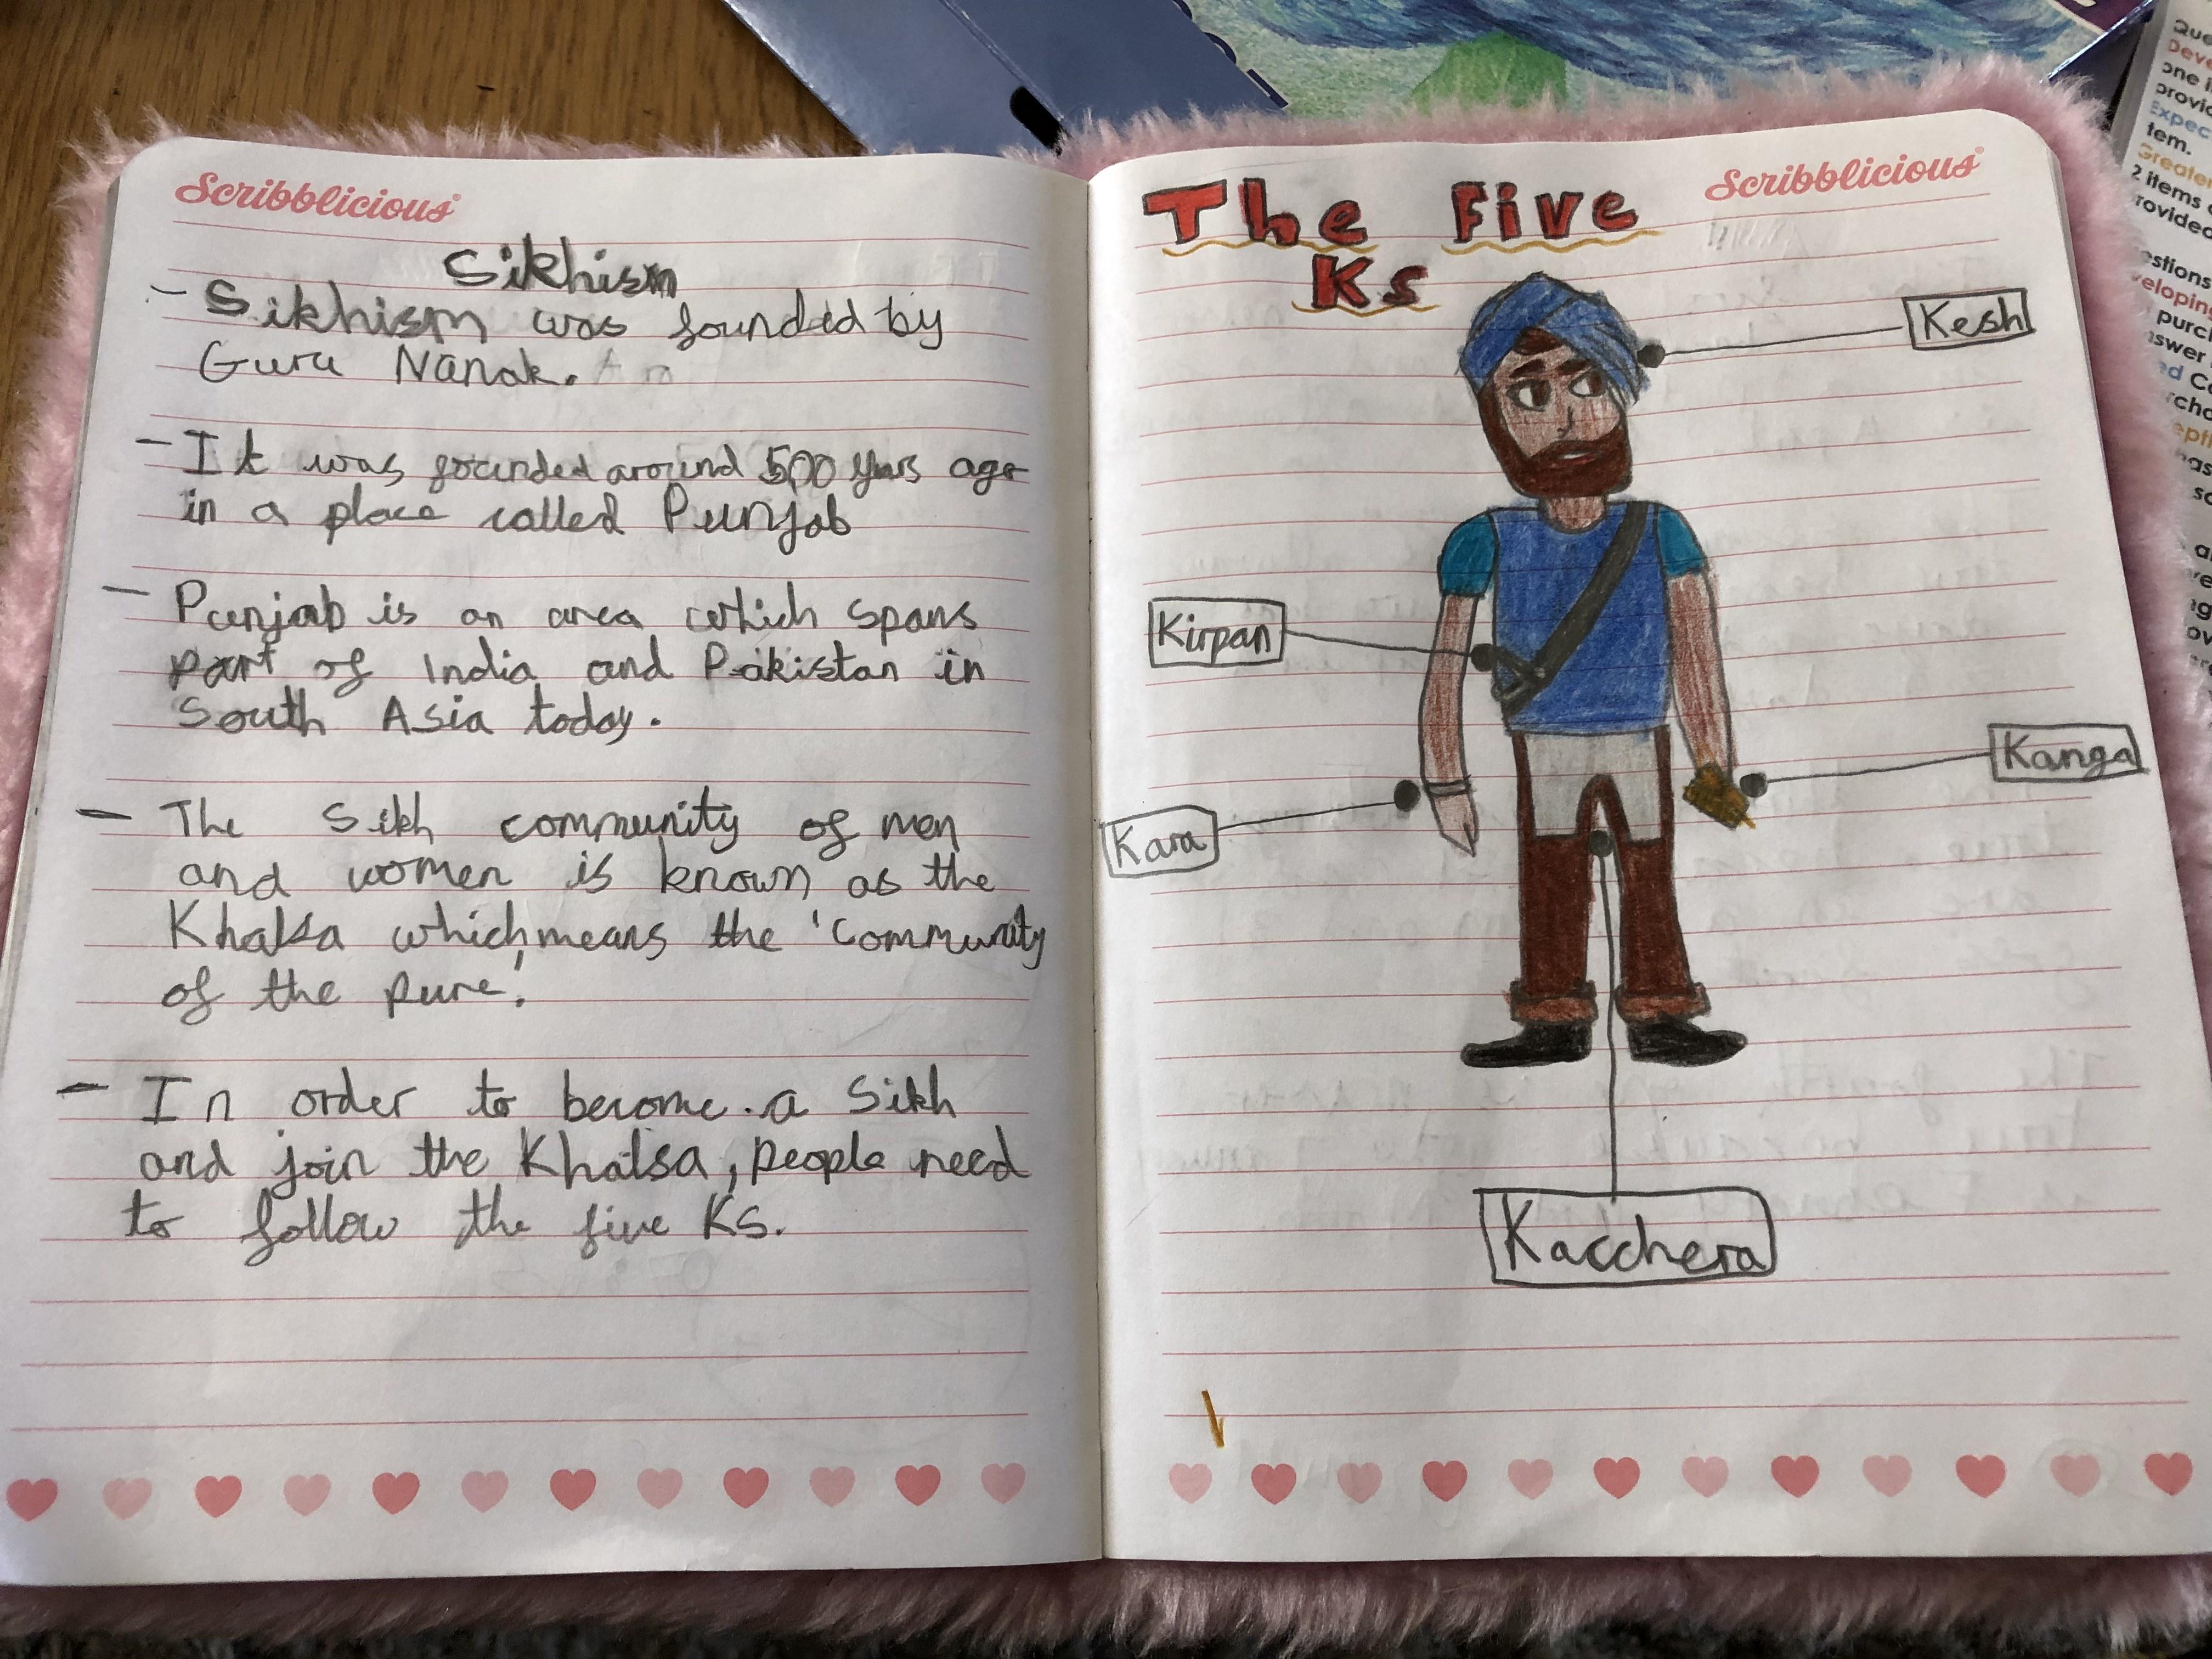 Scribblicious
Sikhism
- Sikhism was founded by
Guru Nanak.
- It was founded around 500 years ago
in a place called Punjab
- Punjab is an area which spans
part of India and Pakistan in
South Asia today.
- The Sikh community of men
and women is known as the
Khalsa which means the 'Community
of the pure'.
- In order to become a Sikh
and join the Khalsa, people need
to follow the five Ks.
The Five
Ks
Scribblicious
Kesh
Kirpan
Kanga
Kara
Kacchera